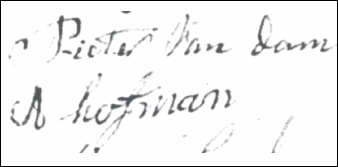 Pieter Van dam
A hofman